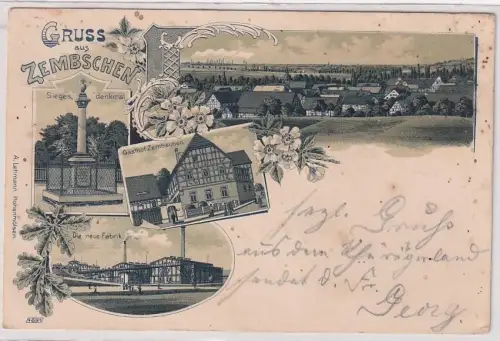 GRUSS
aus
ZEMBSCHEN
Sieges denkmal
Gasthof Zembschen
Die neue Fabrik
A. Lehmann Hohenmölsen
herzl. Gruß
aus dem Thüringerland
sendet d. Fr.
Georg.